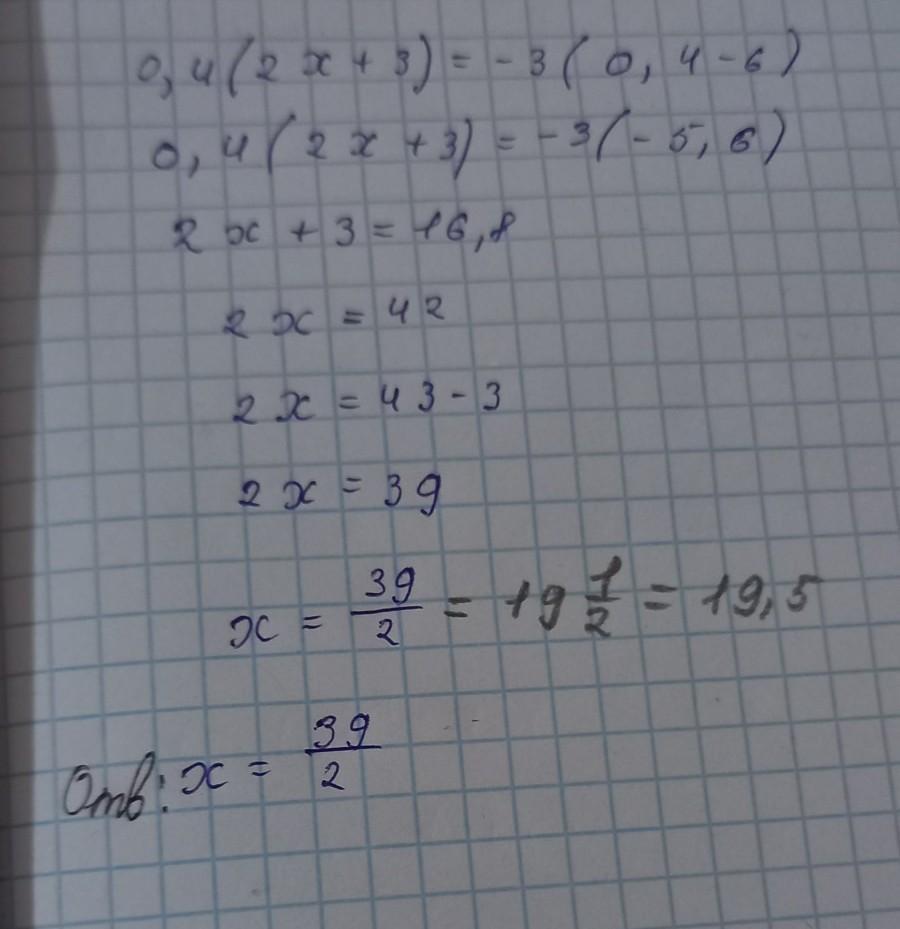 0,4(2x+3)=-3(0,4-6)
0,4(2x+3)=-3(-5,6)
2x+3=16,8
2x=42
2x=43-3
2x=39
x=39/2=19 1/2=19,5
Отв: x=39/2